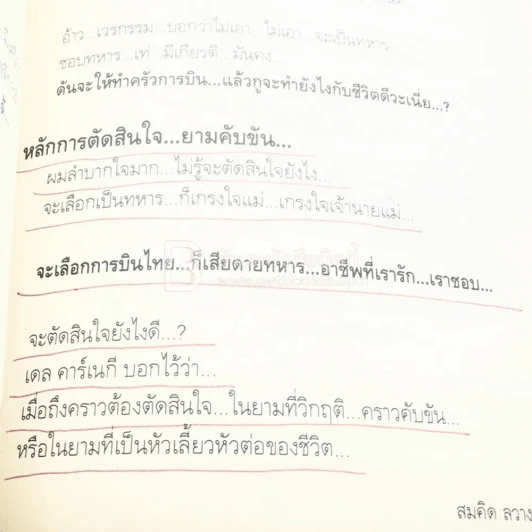 อ้าว...เวรกรรม...บอกว่าไม่เอา...ไม่เอา...จะเป็นทหาร
ชอบทหาร...เท่...มีเกียรติ...มั่นคง...
ดันจะให้ทำครัวการบิน...แล้วกูจะทำยังไงกับชีวิตดีวะเนี่ย...?
หลักการตัดสินใจ...ยามคับขัน...
ผมลำบากใจมาก...ไม่รู้จะตัดสินใจยังไง...
จะเลือกเป็นทหาร...ก็เกรงใจแม่...เกรงใจเจ้านายแม่...
จะเลือกการบินไทย...ก็เสียดายทหาร...อาชีพที่เรารัก...เราชอบ...
จะตัดสินใจยังไงดี...?
เดล คาร์เนกี บอกไว้ว่า...
เมื่อถึงคราวต้องตัดสินใจ...ในยามที่วิกฤติ...คราวคับขัน...
หรือในยามที่เป็นหัวเลี้ยวหัวต่อของชีวิต...
สมคิด ลวาง